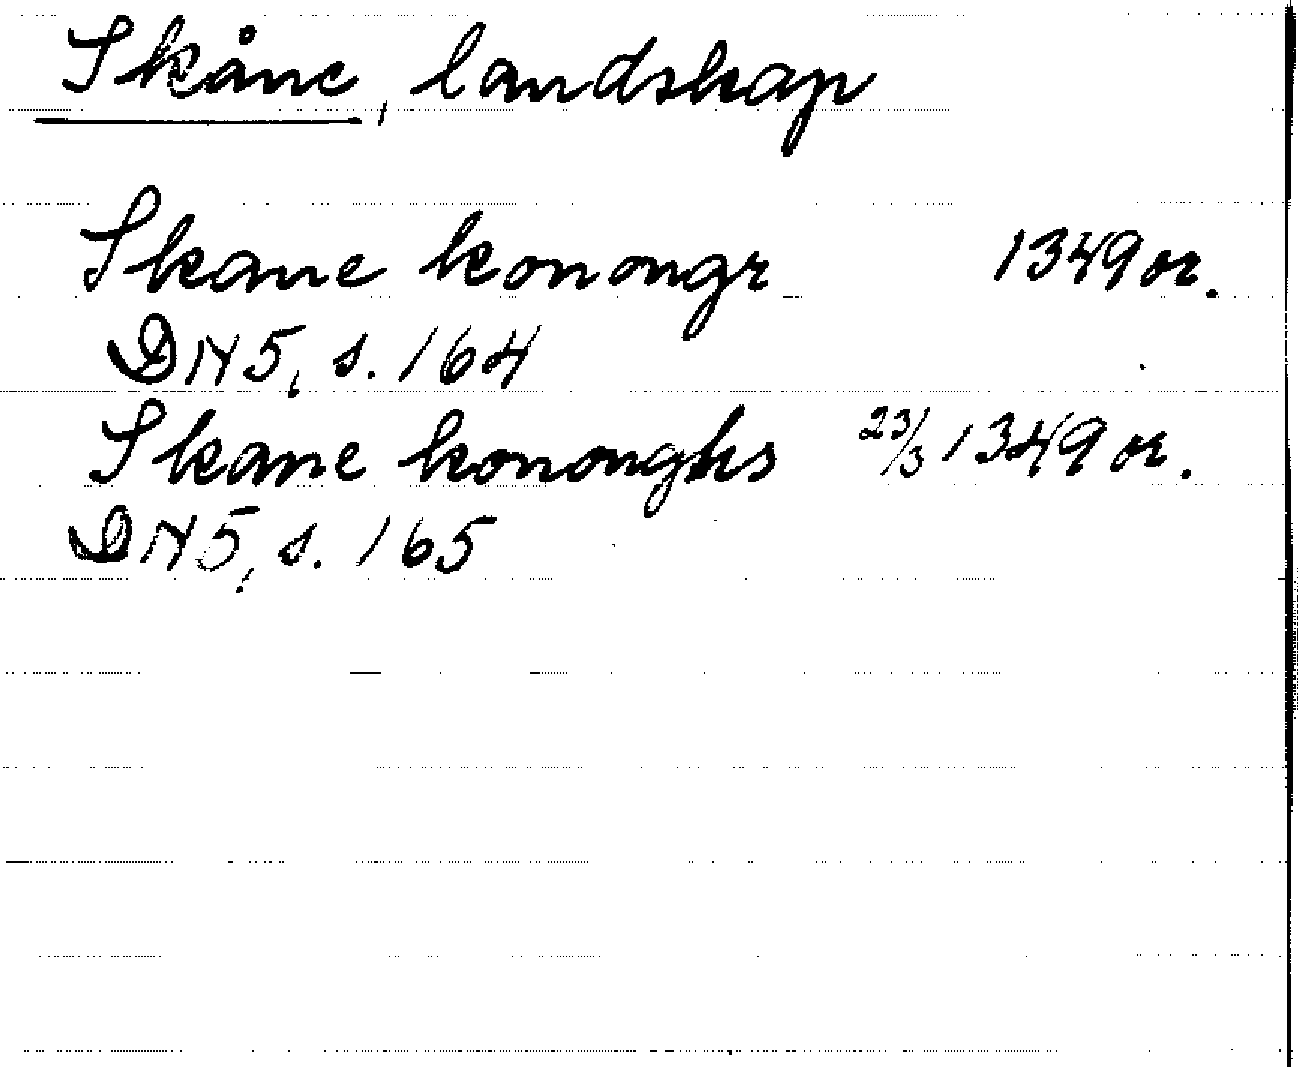 Skåne, landskap
Skane konongr 1349 or.
DN 5, s. 164
Skane kononghs 23/3 1349 or.
DN 5, s. 165